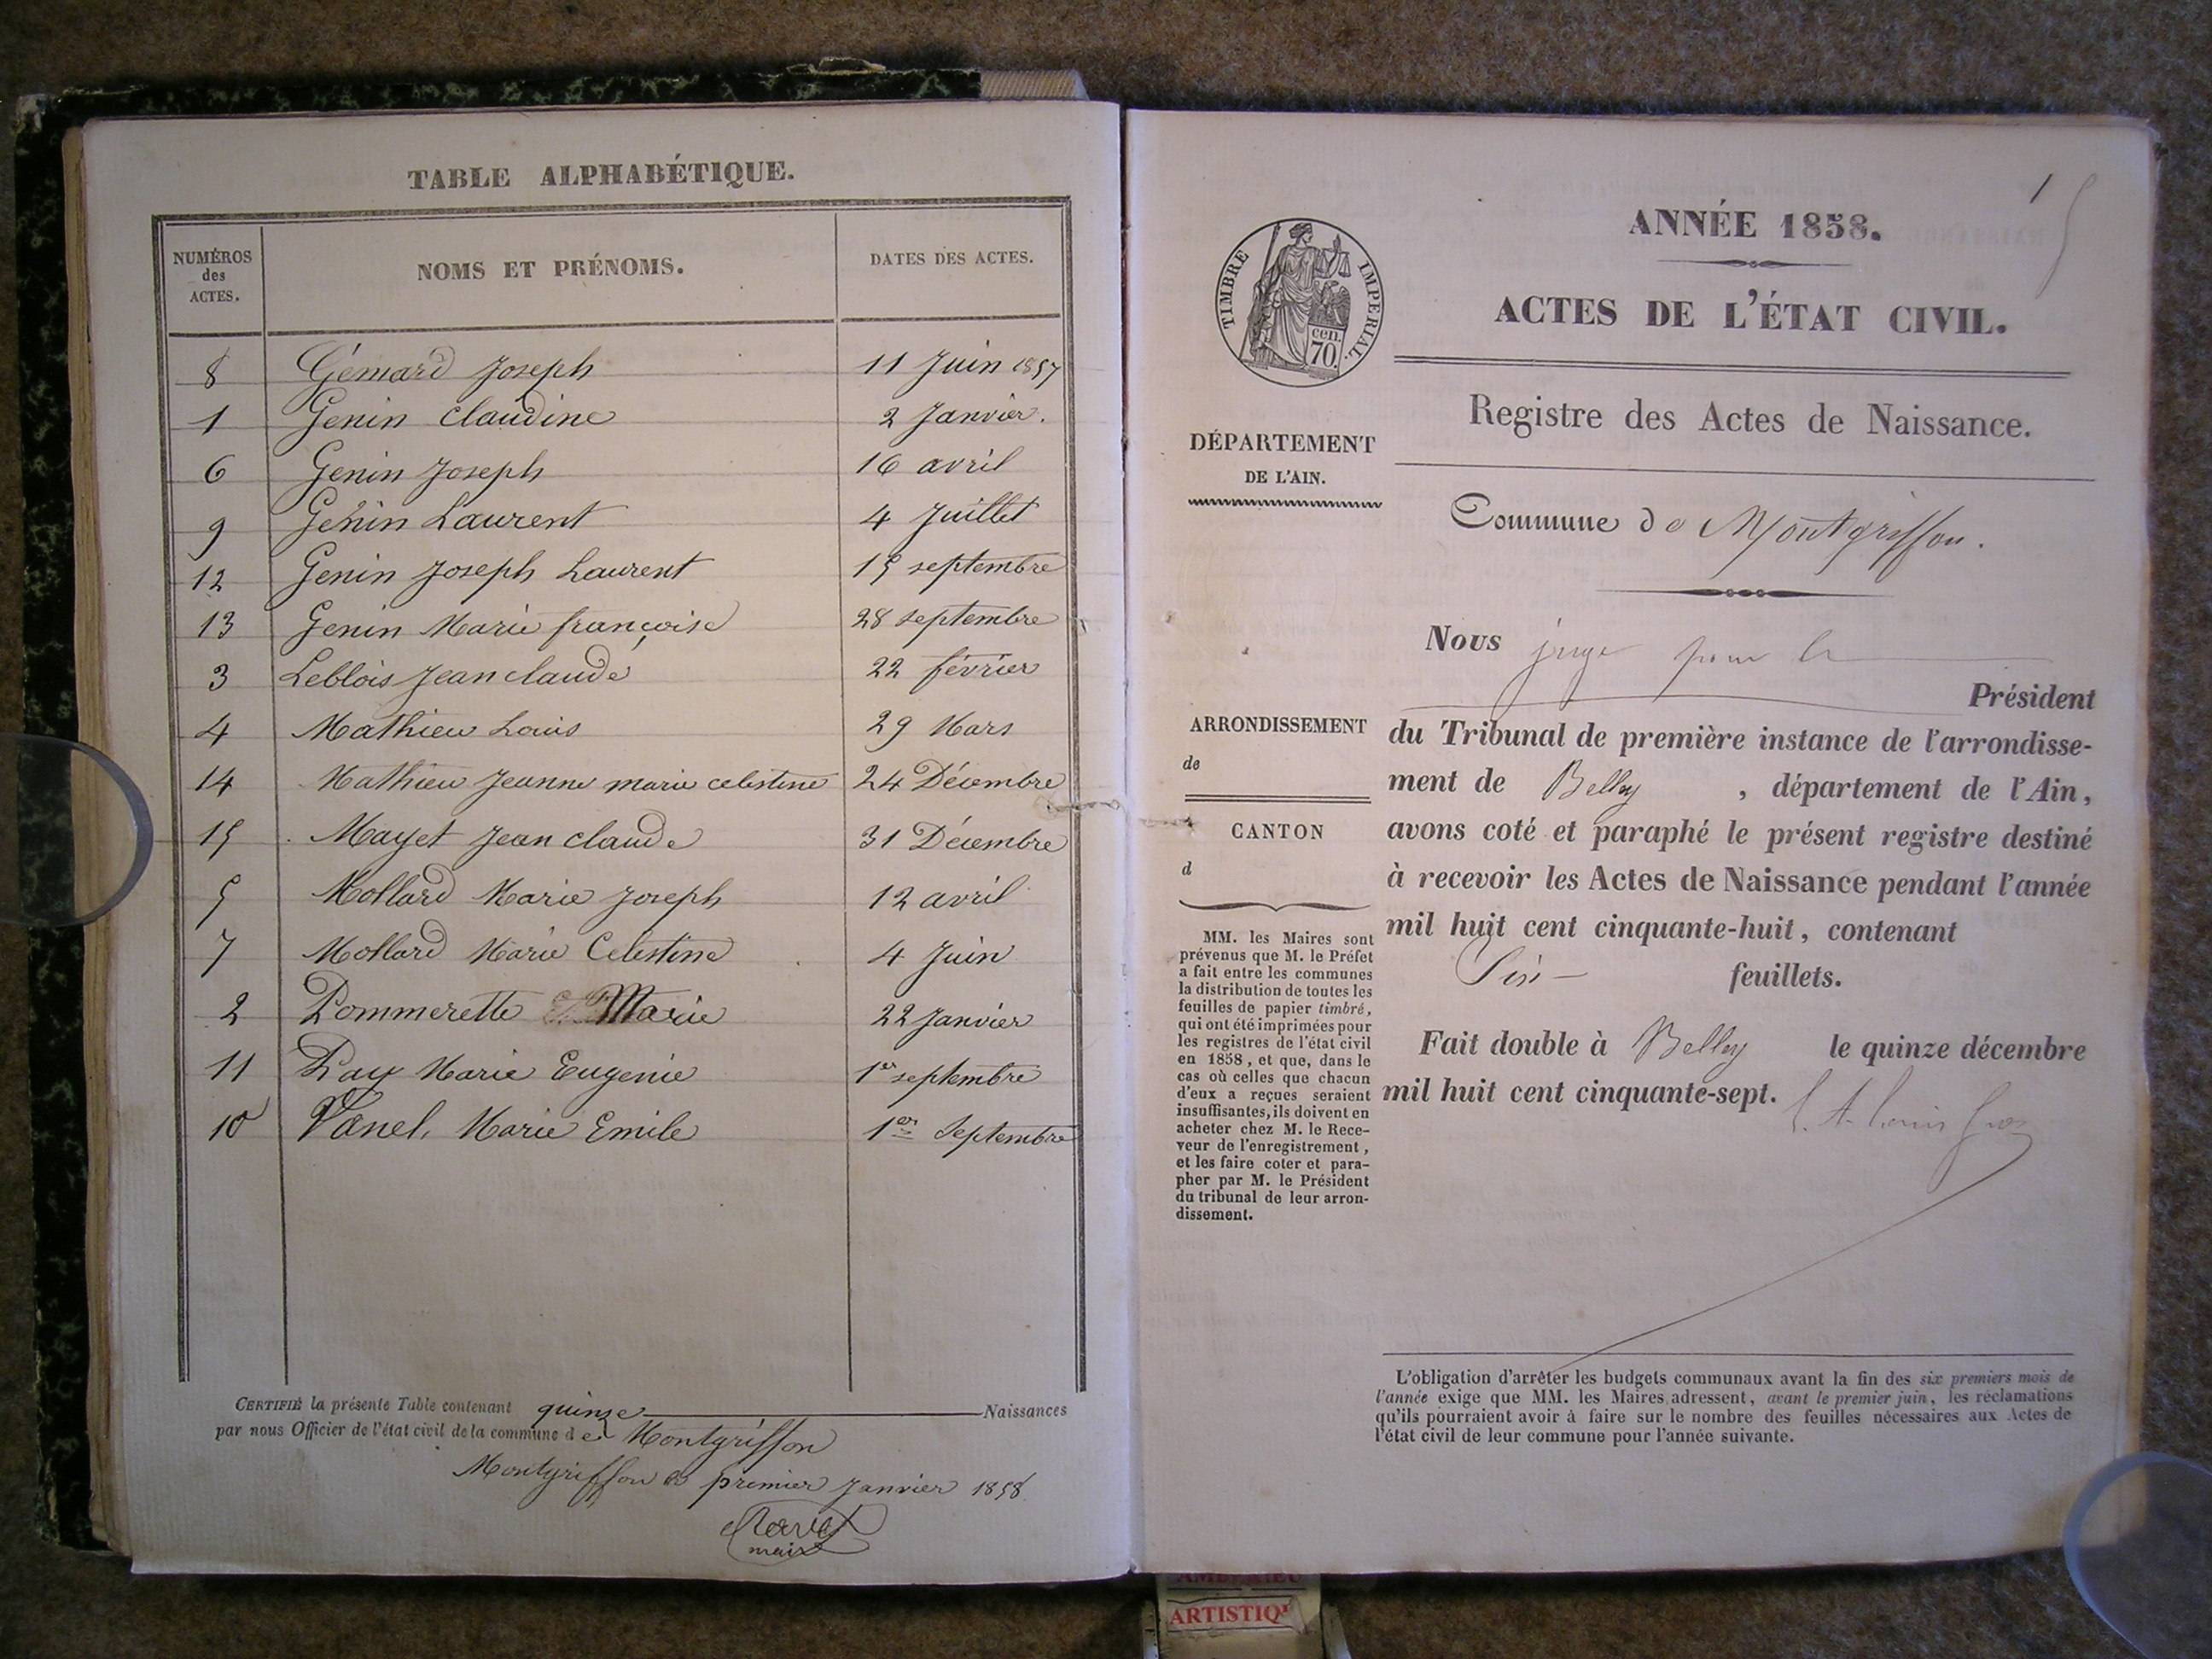 TABLE ALPHABÉTIQUE.
NUMÉROS des ACTES. NOMS ET PRÉNOMS. DATES DES ACTES.
8 Gémard Joseph 11 Juin 1857
1 Genin Claudine 2 Janvier.
6 Genin Joseph 16 avril
9 Genin Laurent 4 Juillet
12 Genin Joseph Laurent 15 septembre
13 Genin Marie françoise 28 septembre
3 Leblois Jean claude 22 février
4 Mathieu Louis 29 Mars
14 Mathieu Jeanne marie celestine 24 Décembre
15 Mayet Jean claude 31 Décembre
5 Mollard Marie Joseph 12 avril
7 Mollard Marie Celestine 4 Juin
2 Pommerette Marie 22 Janvier
11 Marie Eugenie 1er septembre
10 Vanel, Marie Emile 1er Septembre
CERTIFIÉ la présente Table contenant quinze Naissances
par nous Officier de l'état civil de la commune de Montgriffon
Montgriffon le premier Janvier 1858
maire
1
ANNÉE 1858.
ACTES DE L'ÉTAT CIVIL.
TIMBRE IMPERIAL.
cen.
70.
Registre des Actes de Naissance.
DÉPARTEMENT
DE L'AIN.
Commune de Montgriffon.
Nous juge pour le
Président
du Tribunal de première instance de l'arrondisse-
ment de Belley , département de l'Ain,
avons coté et paraphé le présent registre destiné
à recevoir les Actes de Naissance pendant l'année
mil huit cent cinquante-huit, contenant
Six feuillets.
Fait double à Belley le quinze décembre
mil huit cent cinquante-sept.
ARRONDISSEMENT
de
CANTON
d
MM. les Maires sont
prévenus que M. le Préfet
a fait entre les communes
la distribution de toutes les
feuilles de papier timbré,
qui ont été imprimées pour
les registres de l'état civil
en 1858, et que, dans le
cas où celles que chacun
d'eux a reçues seraient
insuffisantes, ils doivent en
acheter chez M. le Rece-
veur de l'enregistrement,
et les faire coter et para-
pher par M. le Président
du tribunal de leur arron-
dissement.
L'obligation d'arrêter les budgets communaux avant la fin des six premiers mois de
l'année exige que MM. les Maires adressent, avant le premier juin, les réclamations
qu'ils pourraient avoir à faire sur le nombre des feuilles nécessaires aux Actes de
l'état civil de leur commune pour l'année suivante.